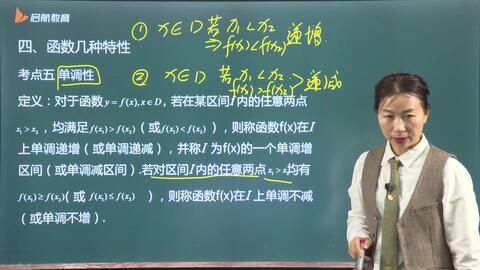 启航教育
四、函数几种特性
考点五 单调性
① x∈D 若 x₁<x₂
⇒ f(x₁)<f(x₂) 递增
② x∈D 若 x₁<x₂
f(x₁)>f(x₂) 递减
定义：对于函数y=f(x),x∈D，若在某区间I内的任意两点
x₁>x₂，均满足f(x₁)>f(x₂)（或f(x₁)<f(x₂)），则称函数f(x)在I
上单调递增（或单调递减），并称I为f(x)的一个单调增
区间（或单调减区间）.若对区间I内的任意两点x₁>x₂均有
f(x₁)≥f(x₂)（或 f(x₁)≤f(x₂) ），则称函数f(x)在I上单调不减
（或单调不增）.